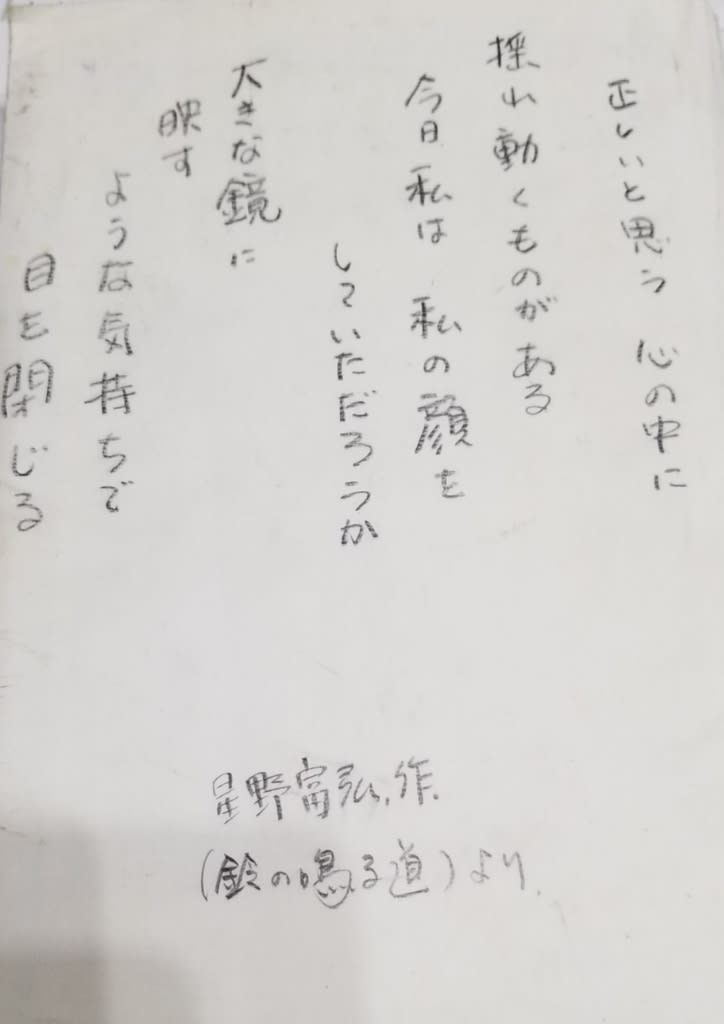 正しいと思う 心の中に
揺れ動くものがある
今日私は 私の顔を
していただろうか
大きな鏡に
映す
ような気持ちで
目を閉じる
星野富弘.作.
(鈴の鳴る道)より.